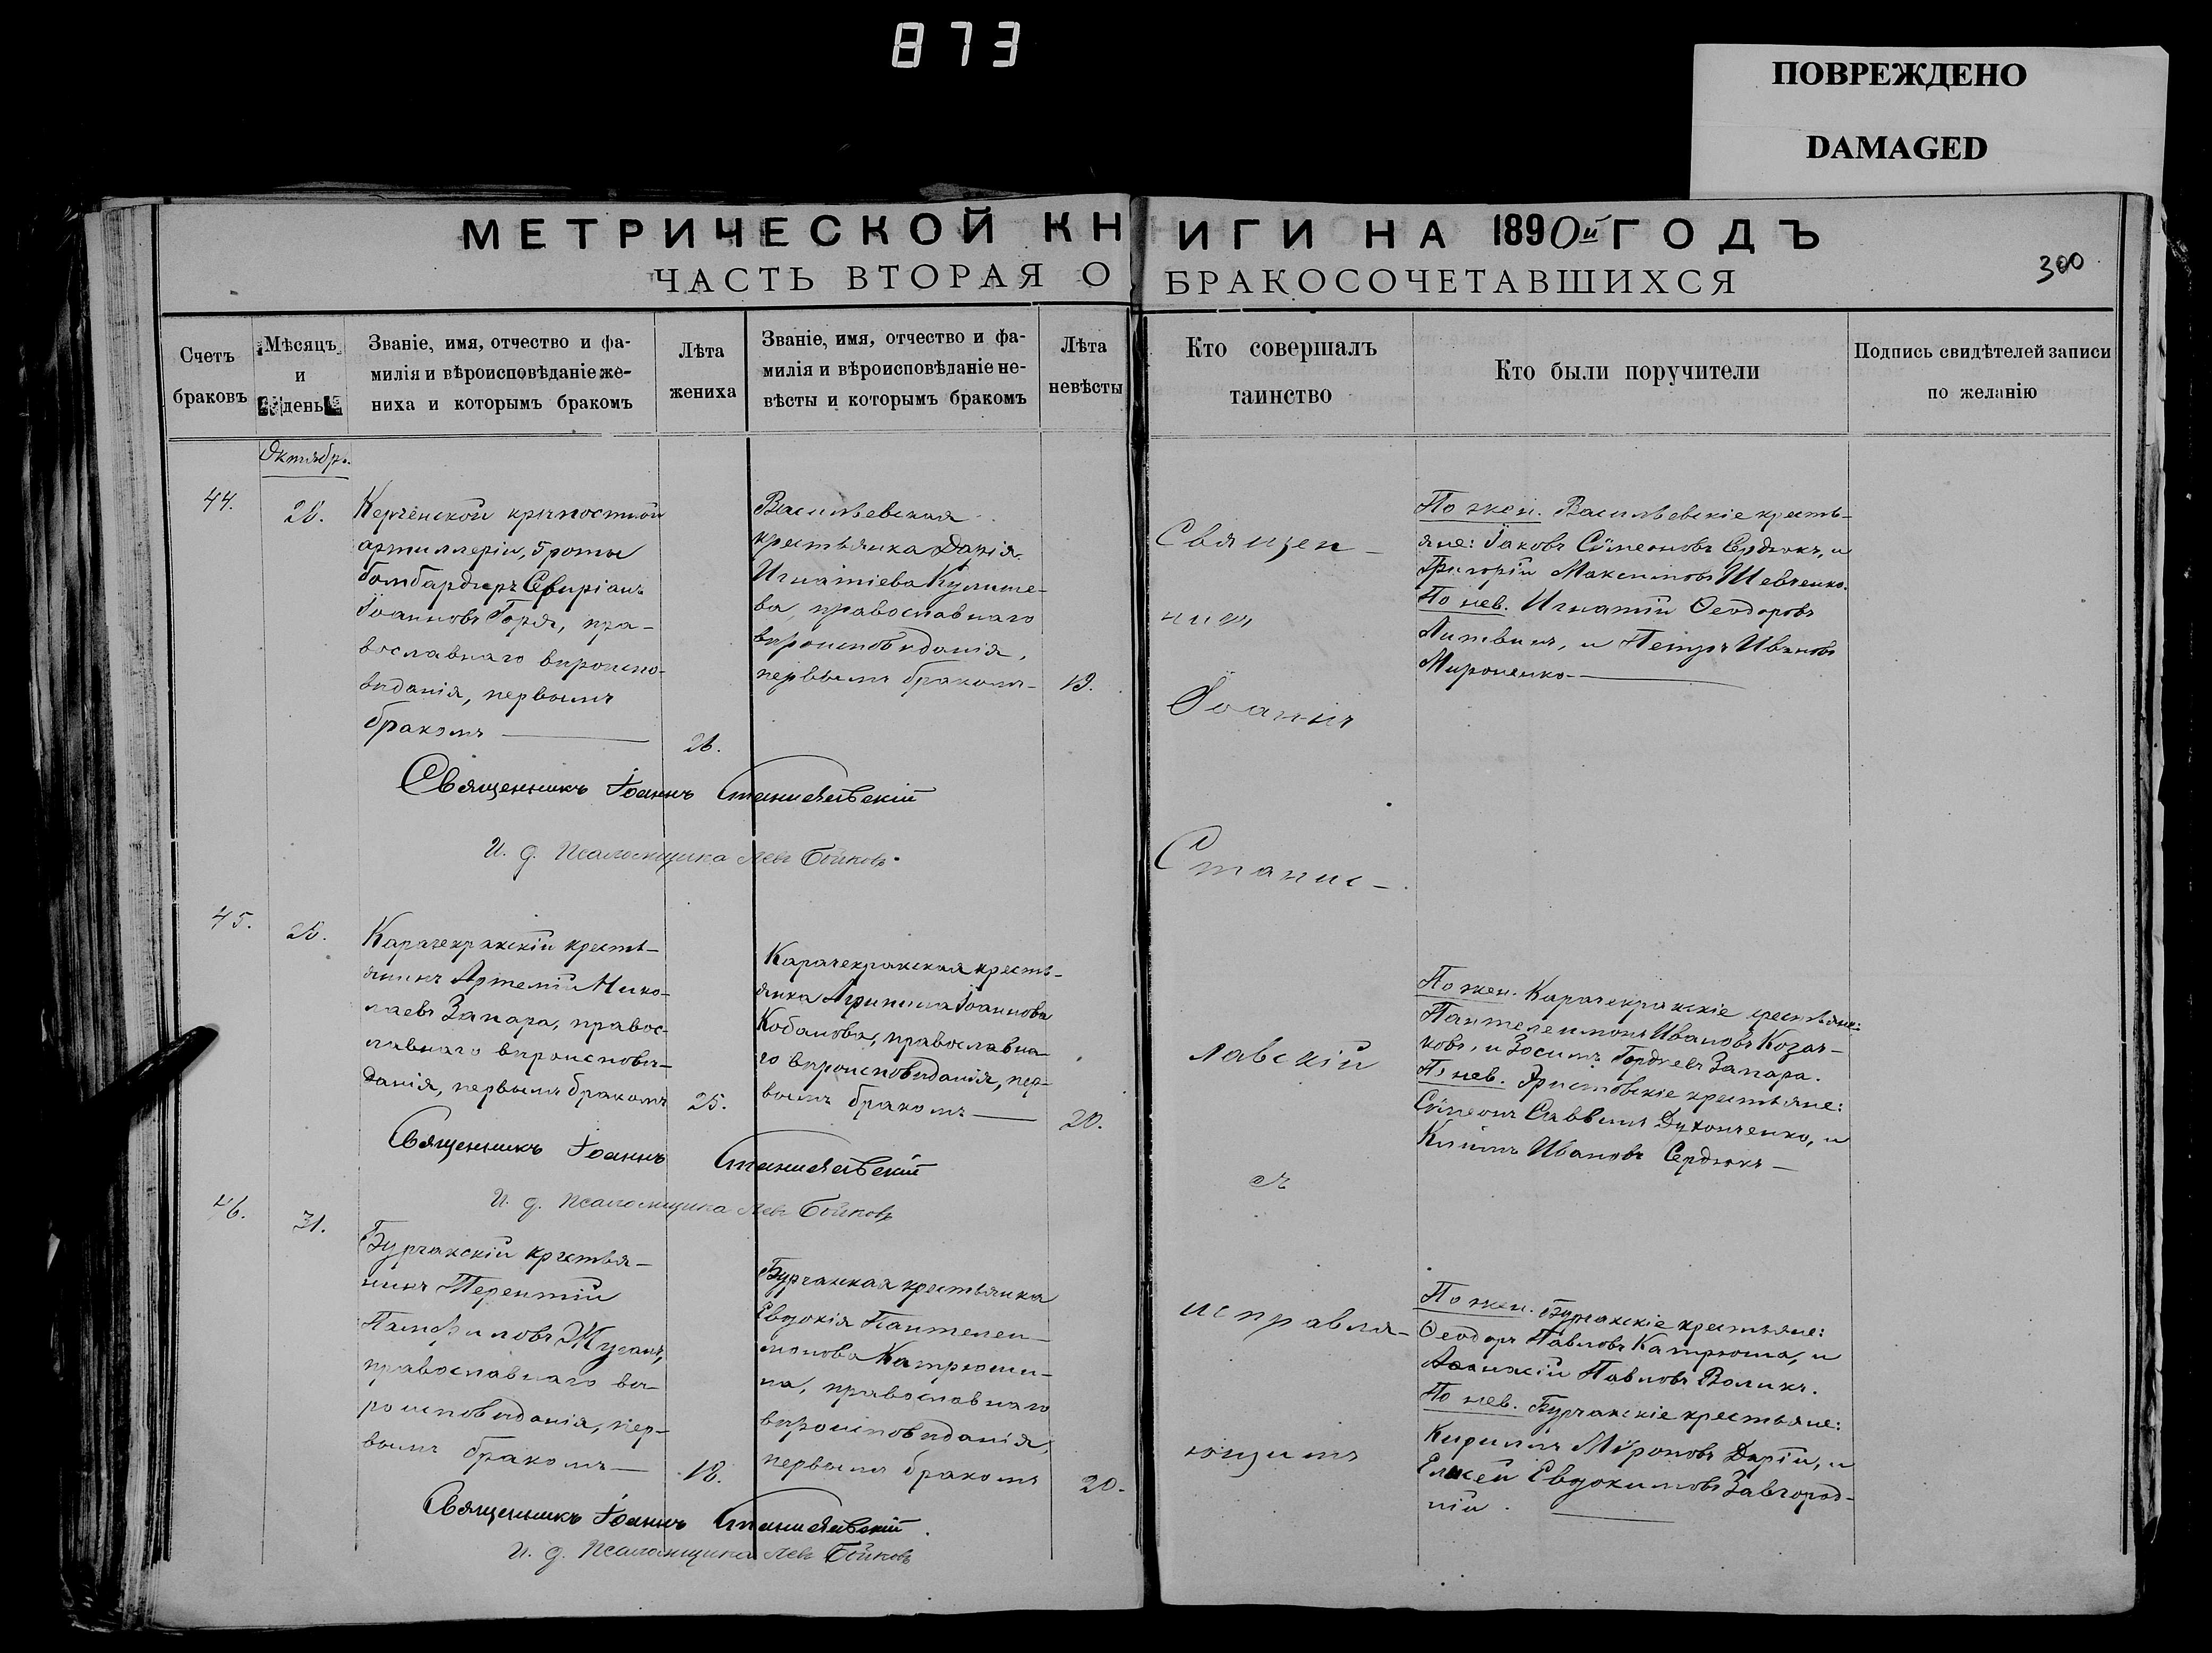 873
ПОВРЕЖДЕНО
DAMAGED
МЕТРИЧЕСКОЙ КНИГИ НА 1890й ГОДЪ
ЧАСТЬ ВТОРАЯ О БРАКОСОЧЕТАВШИХСЯ
300
Счетъ
браковъ
Мѣсяцъ
и
день
Званіе, имя, отчество и фа-
милія и вѣроисповѣданіе же-
ниха и которымъ бракомъ
Лѣта
жениха
Званіе, имя, отчество и фа-
милія и вѣроисповѣданіе не-
вѣсты и которымъ бракомъ
Лѣта
невѣсты
Кто совершалъ
таинство
Кто были поручители
Подпись свидѣтелей записи
по желанію
Октябрь.
44.
28.
Керченской крѣпостной
артиллеріи, 5 роты
бомбардиръ
Іоанновъ Горя, пра-
вославнаго вѣроиспо-
вѣданія, первымъ
бракомъ
26.
Васильевская
крестьянка Дарія
Игнатіева Кулише-
ва, православнаго
вѣроисповѣданія,
первымъ бракомъ
19.
По жен. Васильевскіе кресть-
яне: Іаковъ Сѵмеоновъ Сердюкъ, и
Григорій Максимовъ Шевченко.
По нев. Игнатій Ѳеодоровъ
Литвинъ, и Петръ Ивановъ
Мироненко
Священникъ Іоаннъ Станиславскій
И. д. Псаломщика Левъ Бойковъ.
45.
Карачекракскій кресть-
янинъ Артемій Нико-
лаевъ Запара, правос-
лавнаго вѣроисповѣ-
данія, первымъ бракомъ
25.
Карачекракская кресть-
янка Агрипина Іоаннова
Кобанова, православна-
го вѣроисповѣданія, пер-
вымъ бракомъ
20.
По жен. Карачекракскіе крестьяне:
Пантелеимонъ Ивановъ Козач-
ковъ, и Зосимъ Гордѣевъ Запара.
По нев. Эристовскіе крестьяне:
Сѵмеонъ Саввинъ и
Климъ Ивановъ Сердюкъ
Священникъ Іоаннъ Станиславскій
И. д. Псаломщика Левъ Бойковъ
46.
31.
Бурчакскій крестья-
нинъ Терентій
Памфиловъ
православнаго вѣ-
роисповѣданія, пер-
вымъ бракомъ
18.
Бурчакская крестьянка
Евдокія Пантелеи-
монова Катрюши-
на, православнаго
вѣроисповѣданія,
первымъ бракомъ
20.
По жен. Бурчакскіе крестьяне:
Ѳеодоръ Павловъ Катрюша, и
Аѳанасій Павловъ Воликъ.
По нев. Бурчакскіе крестьяне:
Кириллъ Мѵроновъ и
Елисей Евдокимовъ Завгород-
ній.
Священникъ Іоаннъ Станиславскій
И. д. Псаломщика Левъ Бойковъ
Священ-
никъ
Іоаннъ
Станис-
лавскій
съ
исправля-
ющимъ